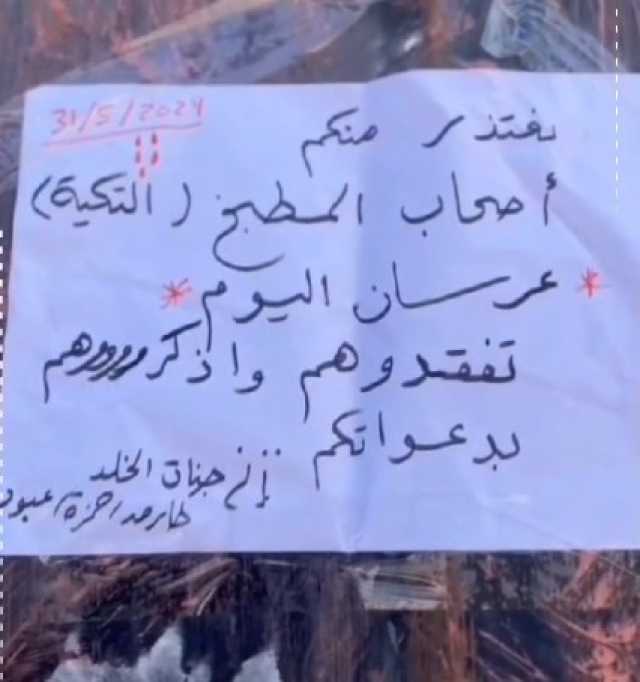 31/5/2024
نعتذر منكم
أصحاب المطبخ (التكية)
* عرسان اليوم *
تفقدوهم واذكروهم
بدعواتكم
إلى جنات الخلد
حمزة / عبود